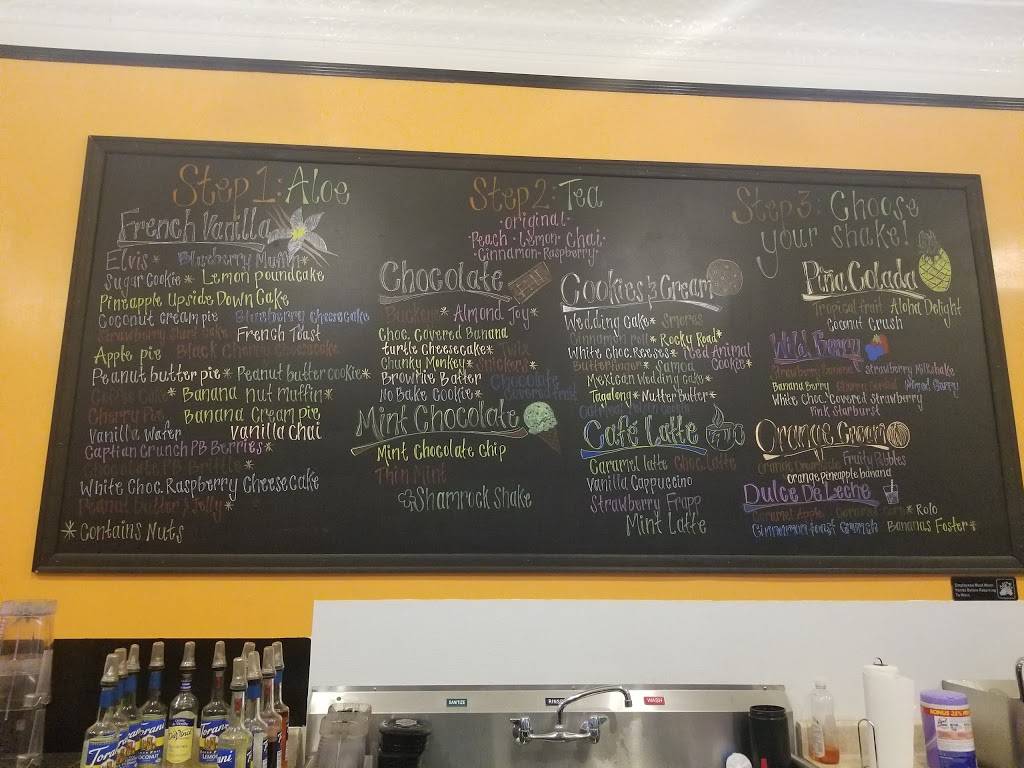 Step 1: Aloe
French Vanilla
Elvis * Blueberry Muffin *
Sugar Cookie * Lemon poundcake
Pineapple Upside Down Cake
Coconut cream pie Blueberry Cheesecake
Strawberry Short Cake French Toast
Apple pie Black Cherry Cheesecake
Peanut butter pie * Peanut butter cookie *
Banana Nut Muffin *
Cherry Pie Banana Cream pie
Vanilla Wafer Vanilla Chai
Captian Crunch PB Berries *
Chocolate PB Brittle *
White Choc. Raspberry Cheesecake
Peanut butter & Jelly *
* Contains Nuts
Step 2: Tea
·original·
Peach · Lemon · Chai ·
·Cinnamon · Raspberry·
Chocolate
* Almond Joy *
Choc. Covered Banana
turtle Cheesecake * Twix
Chunky Monkey * Snickers *
Brownie Batter Chocolate
No Bake Cookie * Covered
Mint Chocolate
Mint Chocolate chip
Thin Mint
Shamrock Shake
Cookies & Cream
Wedding Cake * Smores
Cinnamon roll * Rocky Road *
White Choc. Reeses * Iced Animal
Butterfinger * Samoa Cookie *
Mexican Wedding Cake *
Tagalong * Nutter Butter *
Café Latte
Caramel latte Choc. Latte
Vanilla Cappuccino
Strawberry Frapp
Mint Latte
Step 3: Choose
your shake!
Piña Colada
Tropical fruit Aloha Delight
Coconut Crush
Wild Berry
Strawberry Banana Strawberry Milkshake
Banana Berry Cherry Mixed Berry
White Choc. Covered Strawberry
Pink Starburst
Orange Cream
Orange Dreamsicle Fruity Pebbles
orange pineapple banana
Dulce De Leche
Caramel Apple Caramel Corn * Rolo
Cinnamon toast Crunch Bananas Foster *
Employees Must Wash
Hands Before Returning
To Work
SANITIZE
RINSE
WASH
Torani
Torani
Torani
DaVinci
Torani
Torani
BONUS 25%